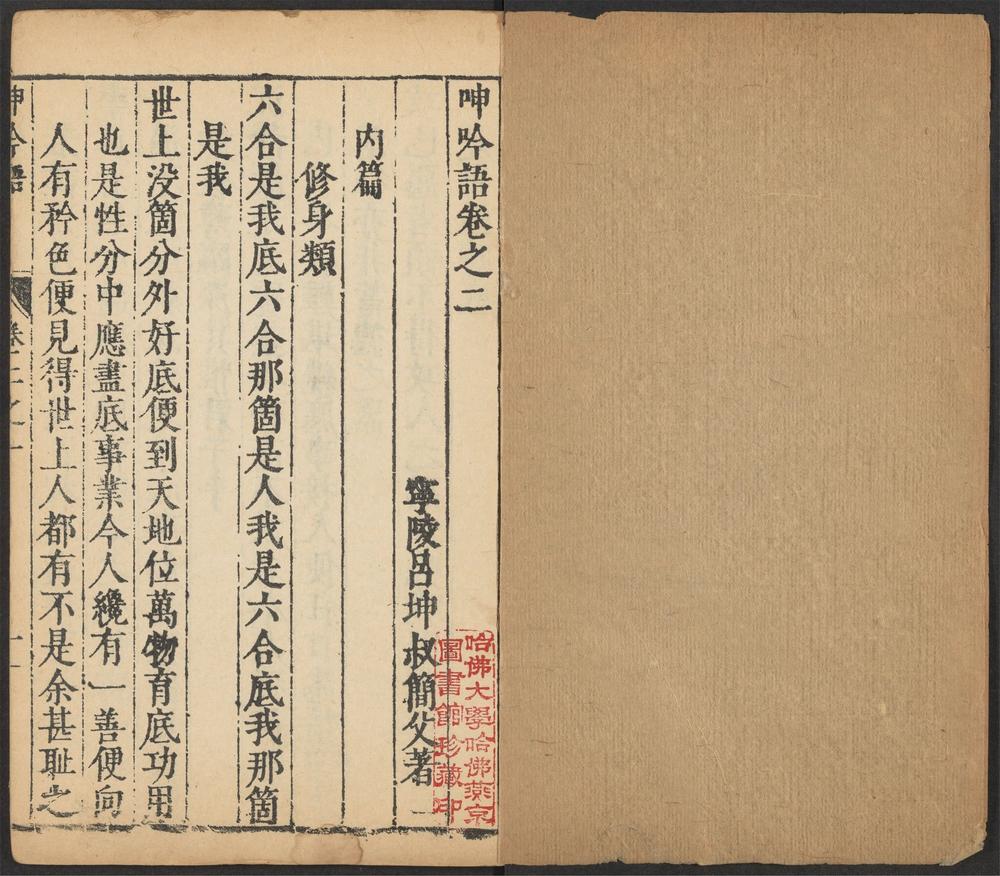 呻吟語卷之二
寧陵呂坤叔簡父著
內篇
修身類
六合是我底六合那箇是人我是六合底我那箇
是我
世上没箇分外好底便到天地位萬物育底功用
也是性分中應盡底事業今人纔有一善便向
人有矜色便見得世上人都有不是余甚恥之
呻吟語
卷二之一
一
哈佛大學哈佛燕京
圖書館珍藏印